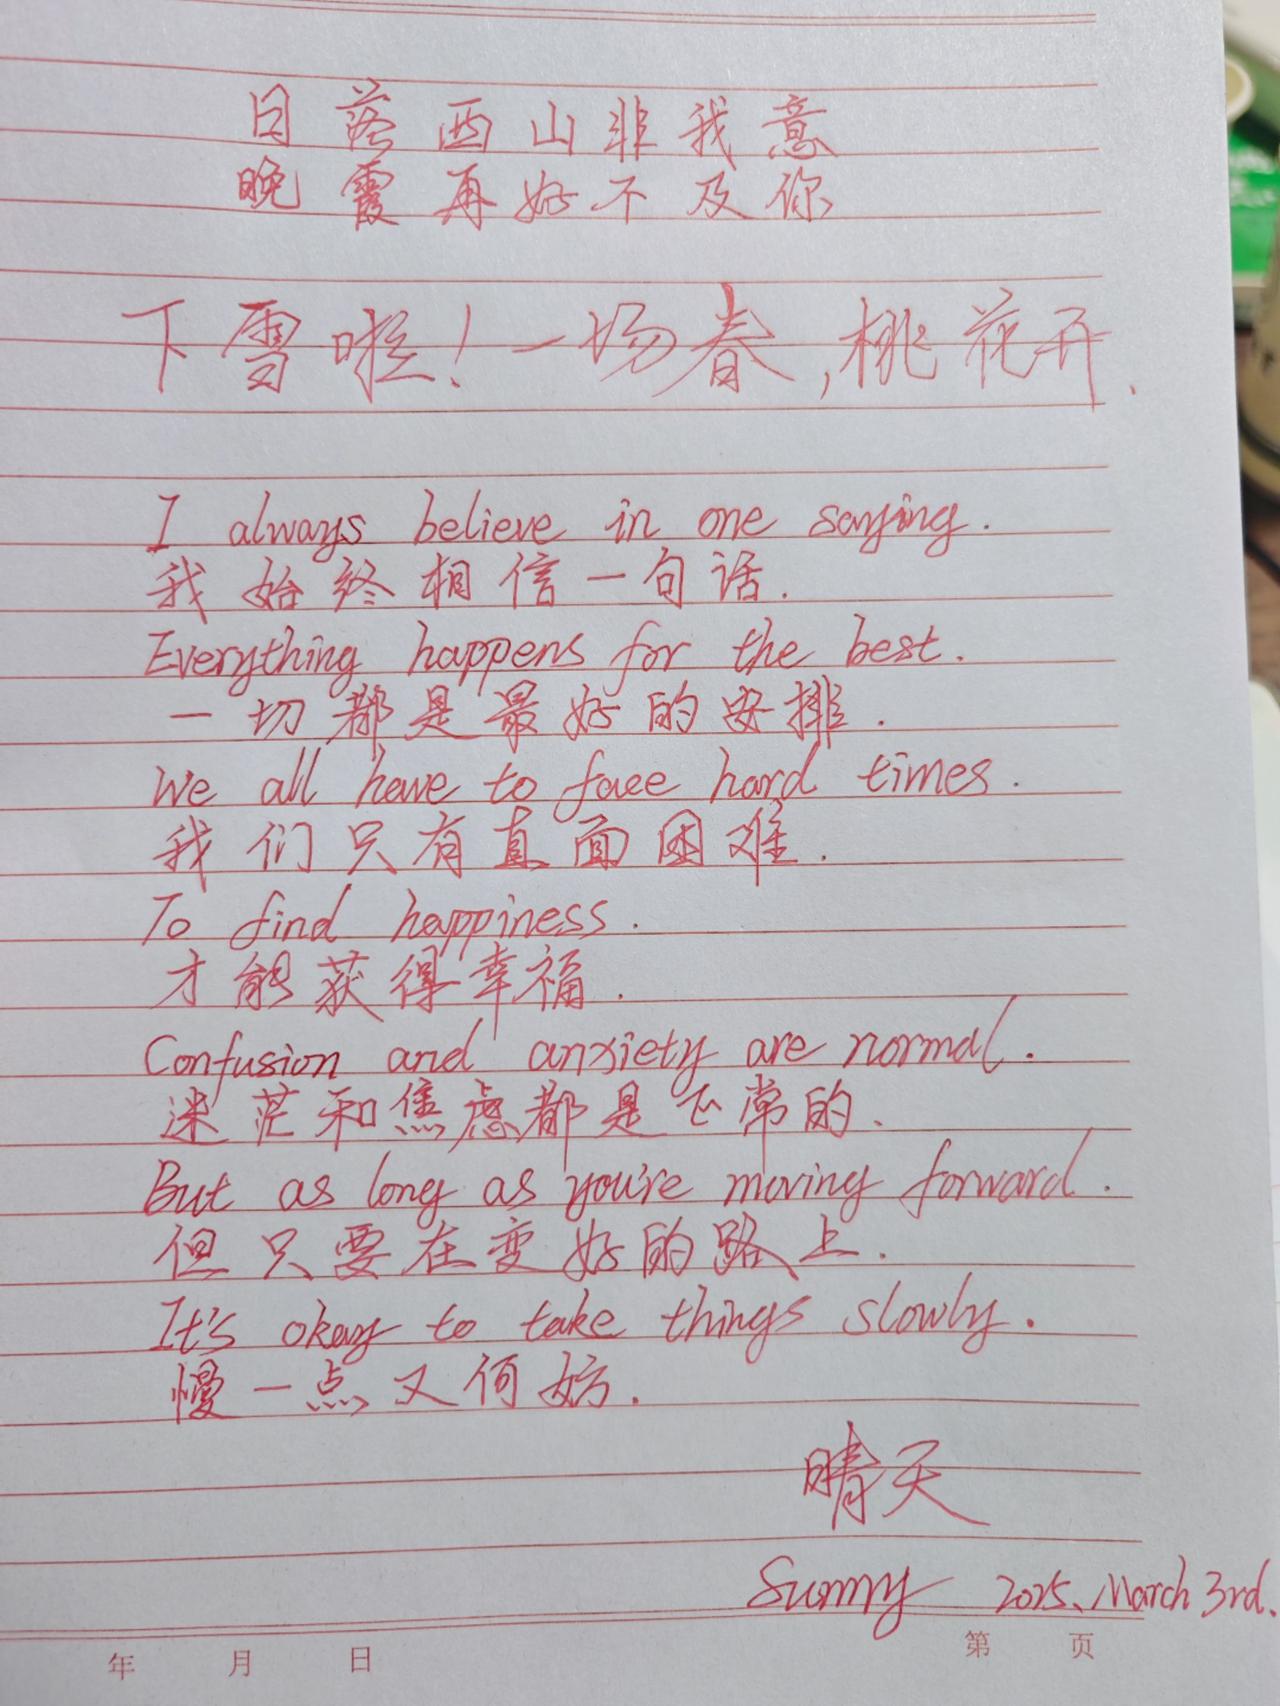 日落西山非我意
晚霞再好不及你
下雪啦！一场春，桃花开.
I always believe in one saying.
我始终相信一句话.
Everything happens for the best.
一切都是最好的安排.
We all have to face hard times.
我们只有直面困难.
To find happiness.
才能获得幸福.
Confusion and anxiety are normal.
迷茫和焦虑都是正常的.
But as long as you're moving forward.
但只要在变好的路上.
It's okay to take things slowly.
慢一点又何妨.
晴天
Sunny 2025、March 3rd.
年 月 日 第 页